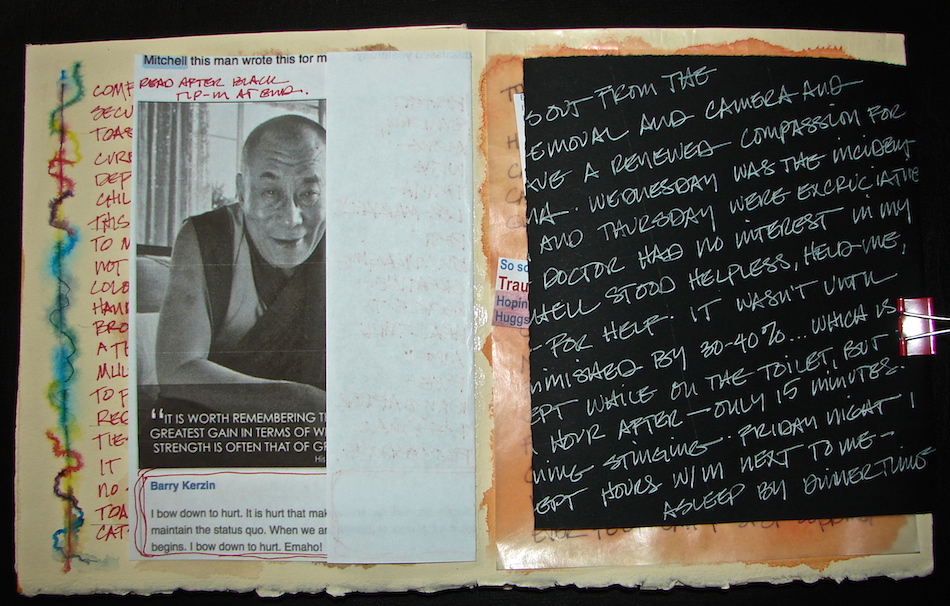 Mitchell this man wrote this for m
READ AFTER BLACK
TIP-IN AT END.
COMF
SECU
TOAS
CURE
DEP
CHIL
THIS
TO M
NOT
COLD
HAN
BRO
A TH
MUL
TO F
REC
TIE
IT
NO
TOA
CAT
"IT IS WORTH REMEMBERING T
GREATEST GAIN IN TERMS OF WI
STRENGTH IS OFTEN THAT OF GR
His
Barry Kerzin
I bow down to hurt. It is hurt that mak
maintain the status quo. When we ar
begins. I bow down to hurt. Emaho!
So so
Trau
Hopin
Huggs
S OUT FROM THE
EMOVAL AND CAMERA AND
AVE A RENEWED COMPASSION FOR
MA. WEDNESDAY WAS THE INCIDENT
AND THURSDAY WERE EXCRUCIATING
DOCTOR HAD NO INTEREST IN MY
STOOD HELPLESS, HELD ME,
FOR HELP. IT WASN'T UNTIL
MINISHED BY 30-40%... WHICH IS
EPT WHILE ON THE TOILET, BUT
HOUR AFTER — ONLY 15 MINUTES.
NING STINGING. FRIDAY NIGHT I
EPT HOURS W/M NEXT TO ME —
ASLEEP BY DINNERTIME